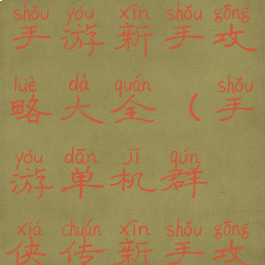 shǒu yóu xīn shǒu gōng
手游新手攻
luè dà quán shǒu
略大全（手
yóu dān jī qún
游单机群
xiá chuán xīn shǒu gōng
侠传新手攻